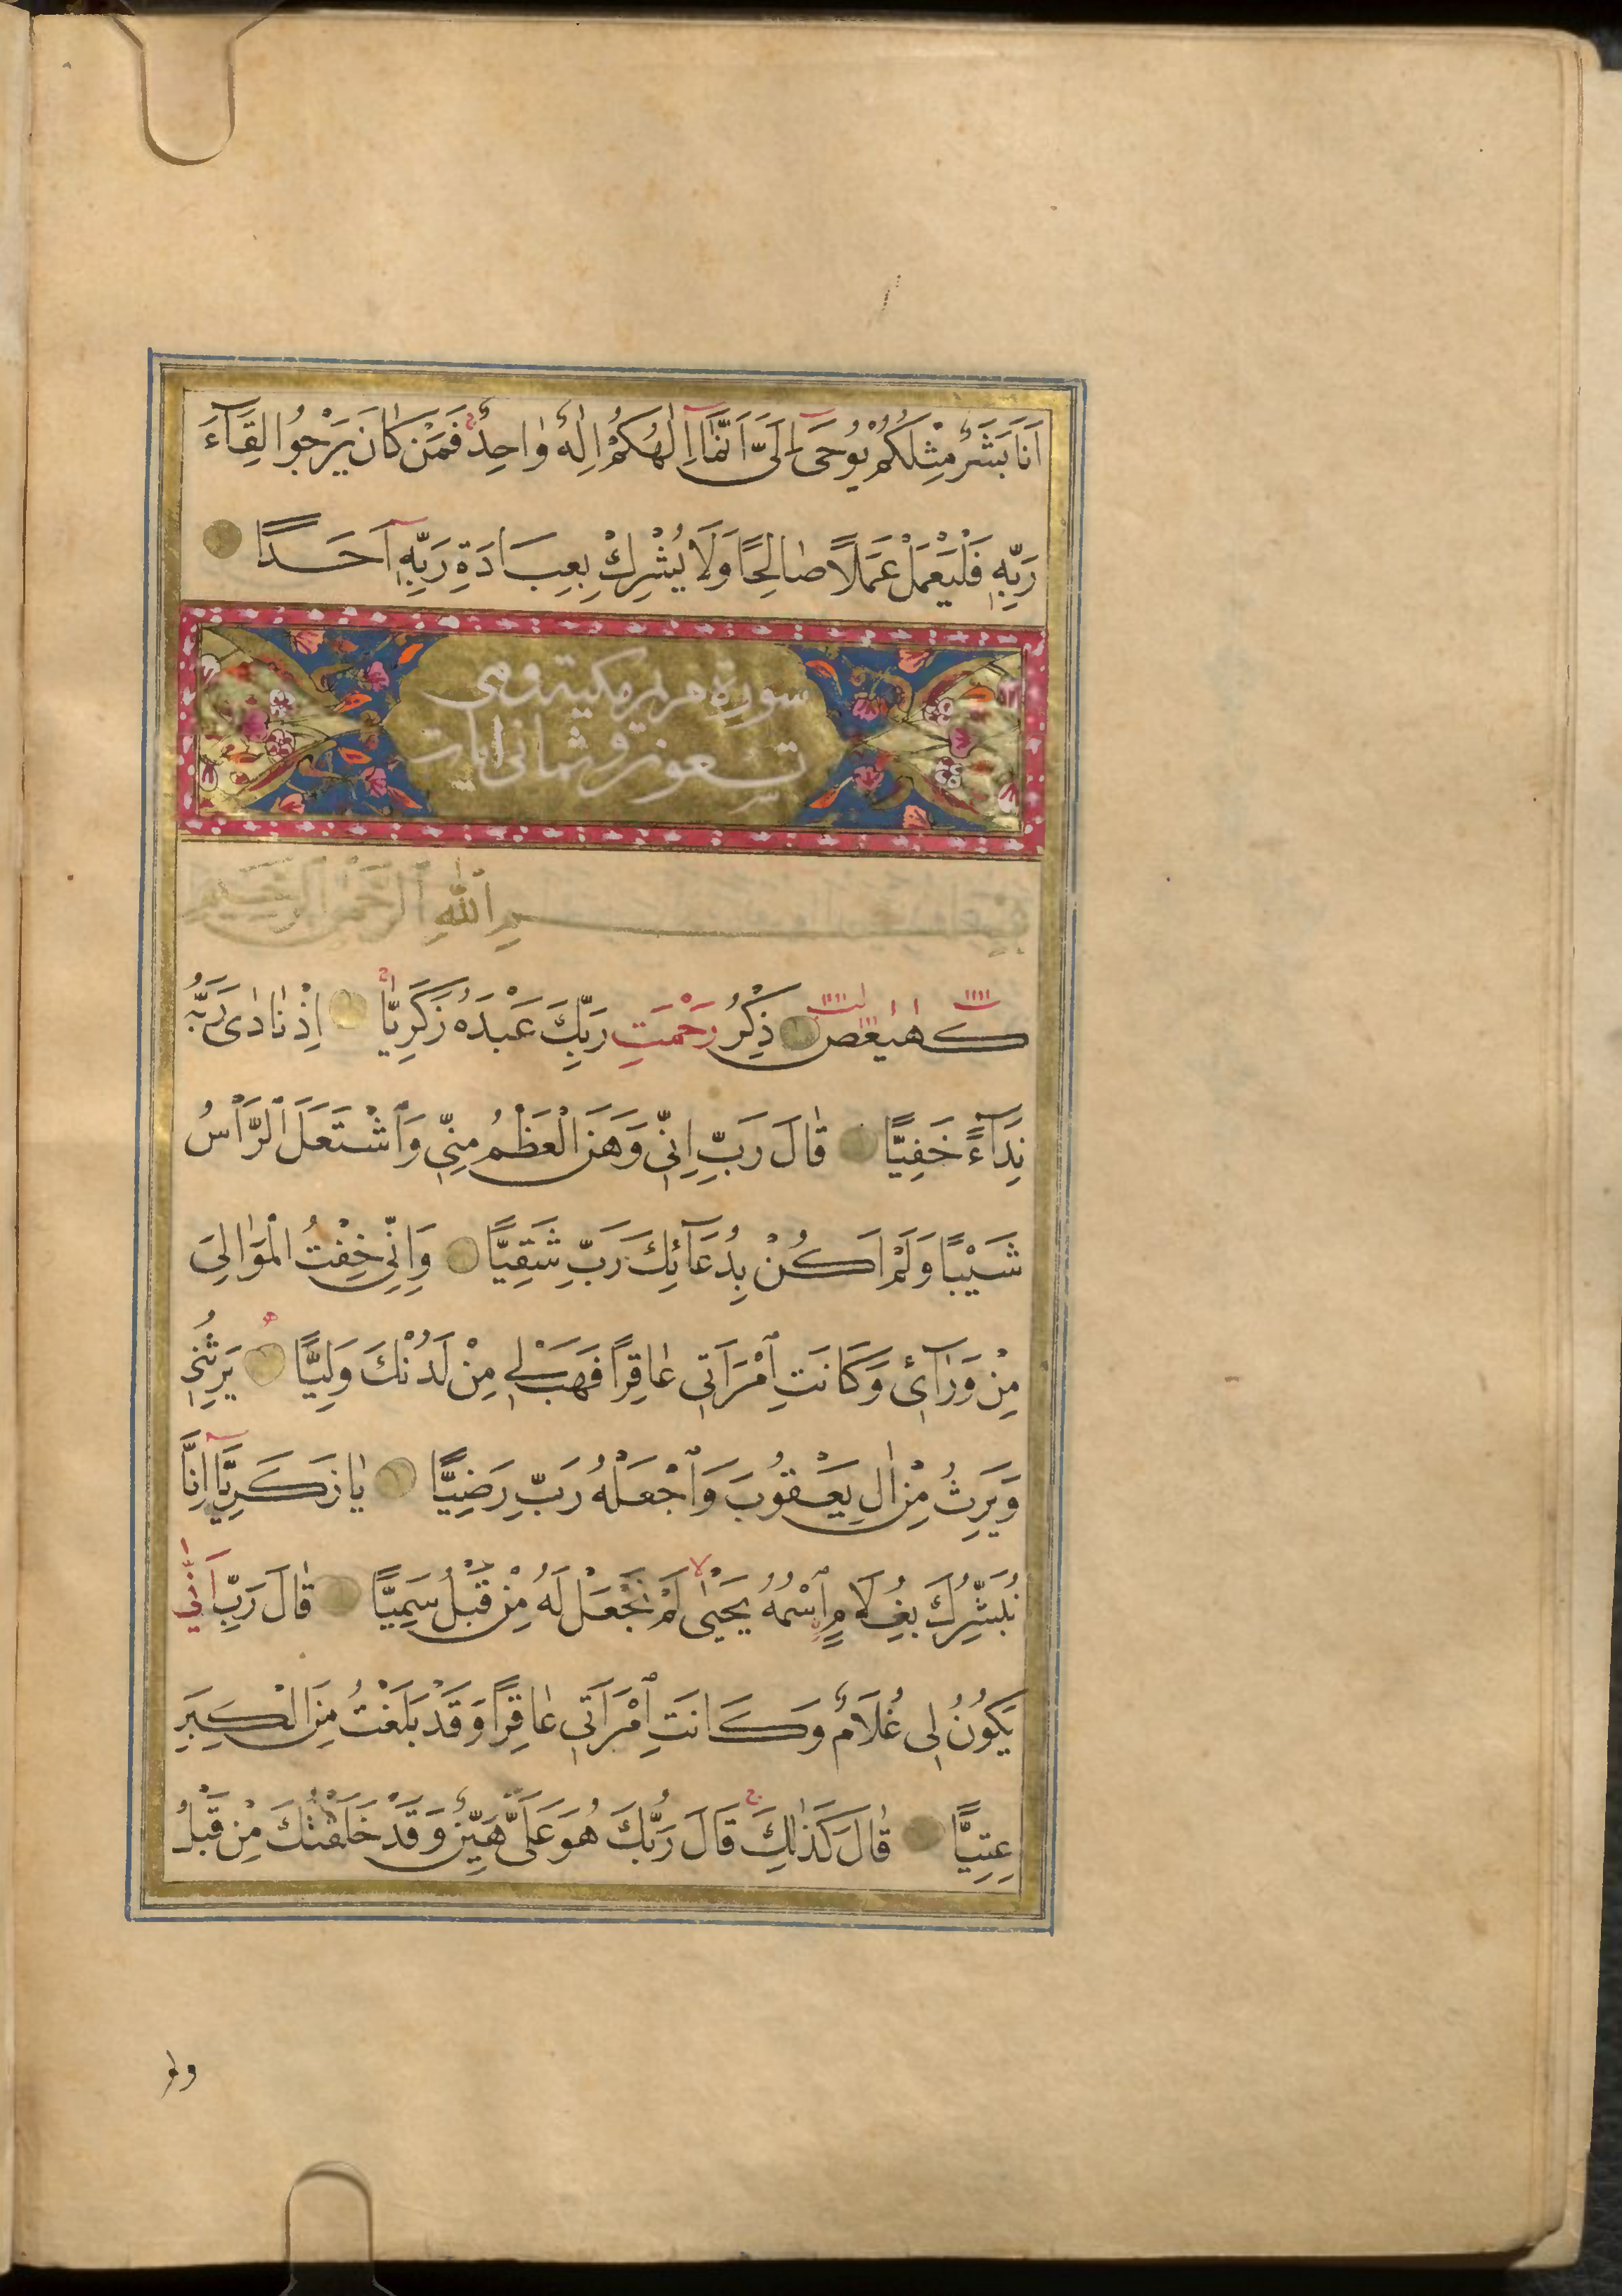 اَنَا بَشَرٌ مِثْلُكُمْ يُوحٰىٓ اِلَىَّ اَنَّمَآ اِلٰهُكُمْ اِلٰهٌ وٰاحِدٌ فَمَنْ كٰانَ يَرْجُوا لِقَآءَ
رَبِّهٖ فَلْيَعْمَلْ عَمَلًا صٰالِحًا وَلَا يُشْرِكْ بِعِبَادَةِ رَبِّهٖٓ اَحَدًا
سورة مريم مكية وهي
تسعون وثماني ايات
بِسْمِ ٱللّٰهِ ٱلرَّحْمٰنِ ٱلرَّحِيمِ
كهيعص ذِكْرُ رَحْمَتِ رَبِّكَ عَبْدَهُ زَكَرِيّٰا اِذْ نٰادٰى رَبَّهُ
نِدَآءً خَفِيًّا قٰالَ رَبِّ اِنّٖى وَهَنَ الْعَظْمُ مِنّٖى وَٱشْتَعَلَ ٱلرَّاْسُ
شَيْبًا وَلَمْ اَكُنْ بِدُعَآئِكَ رَبِّ شَقِيًّا وَاِنّٖى خِفْتُ الْمَوٰالِىَ
مِنْ وَرٰآئٖ وَكَانَتِ ٱمْرَاَتٖى عٰاقِرًا فَهَبْ لٖى مِنْ لَدُنْكَ وَلِيًّا يَرِثُنٖى
وَيَرِثُ مِنْ اٰلِ يَعْقُوبَ وَٱجْعَلْهُ رَبِّ رَضِيًّا يٰا زَكَرِيَّآ اِنَّا
نُبَشِّرُكَ بِغُلَامٍ ٱسْمُهُ يَحْيٰى لَمْ نَجْعَلْ لَهُ مِنْ قَبْلُ سَمِيًّا قٰالَ رَبِّ اَنّٰى
يَكُونُ لٖى غُلَامٌ وَكَانَتِ ٱمْرَاَتٖى عٰاقِرًا وَقَدْ بَلَغْتُ مِنَ الْكِبَرِ
عِتِيًّا قٰالَ كَذٰلِكَ قَالَ رَبُّكَ هُوَ عَلَىَّ هَيِّنٌ وَقَدْ خَلَقْتُكَ مِنْ قَبْلُ
ولم